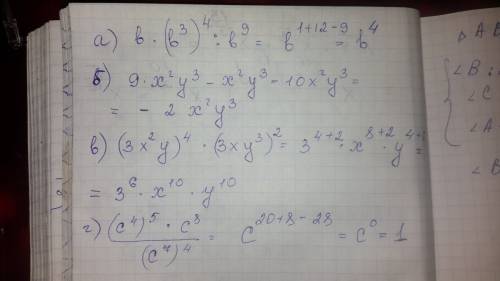 а) в · (в³)⁴ : в⁹ = в¹⁺¹²⁻⁹ = в⁴
б) 9·x²y³ - x²y³ - 10x²y³ =
= - 2 x²y³
в) (3x²y)⁴ · (3xy³)² = 3⁴⁺² · x⁸⁺² · y⁴⁺
= 3⁶ · x¹⁰ · y¹⁰
г) (c⁴)⁵ · c⁸ / (c⁷)⁴ = c²⁰⁺⁸⁻²⁸ = c⁰ = 1
Δ AB
∠B
∠C
∠A
∠B